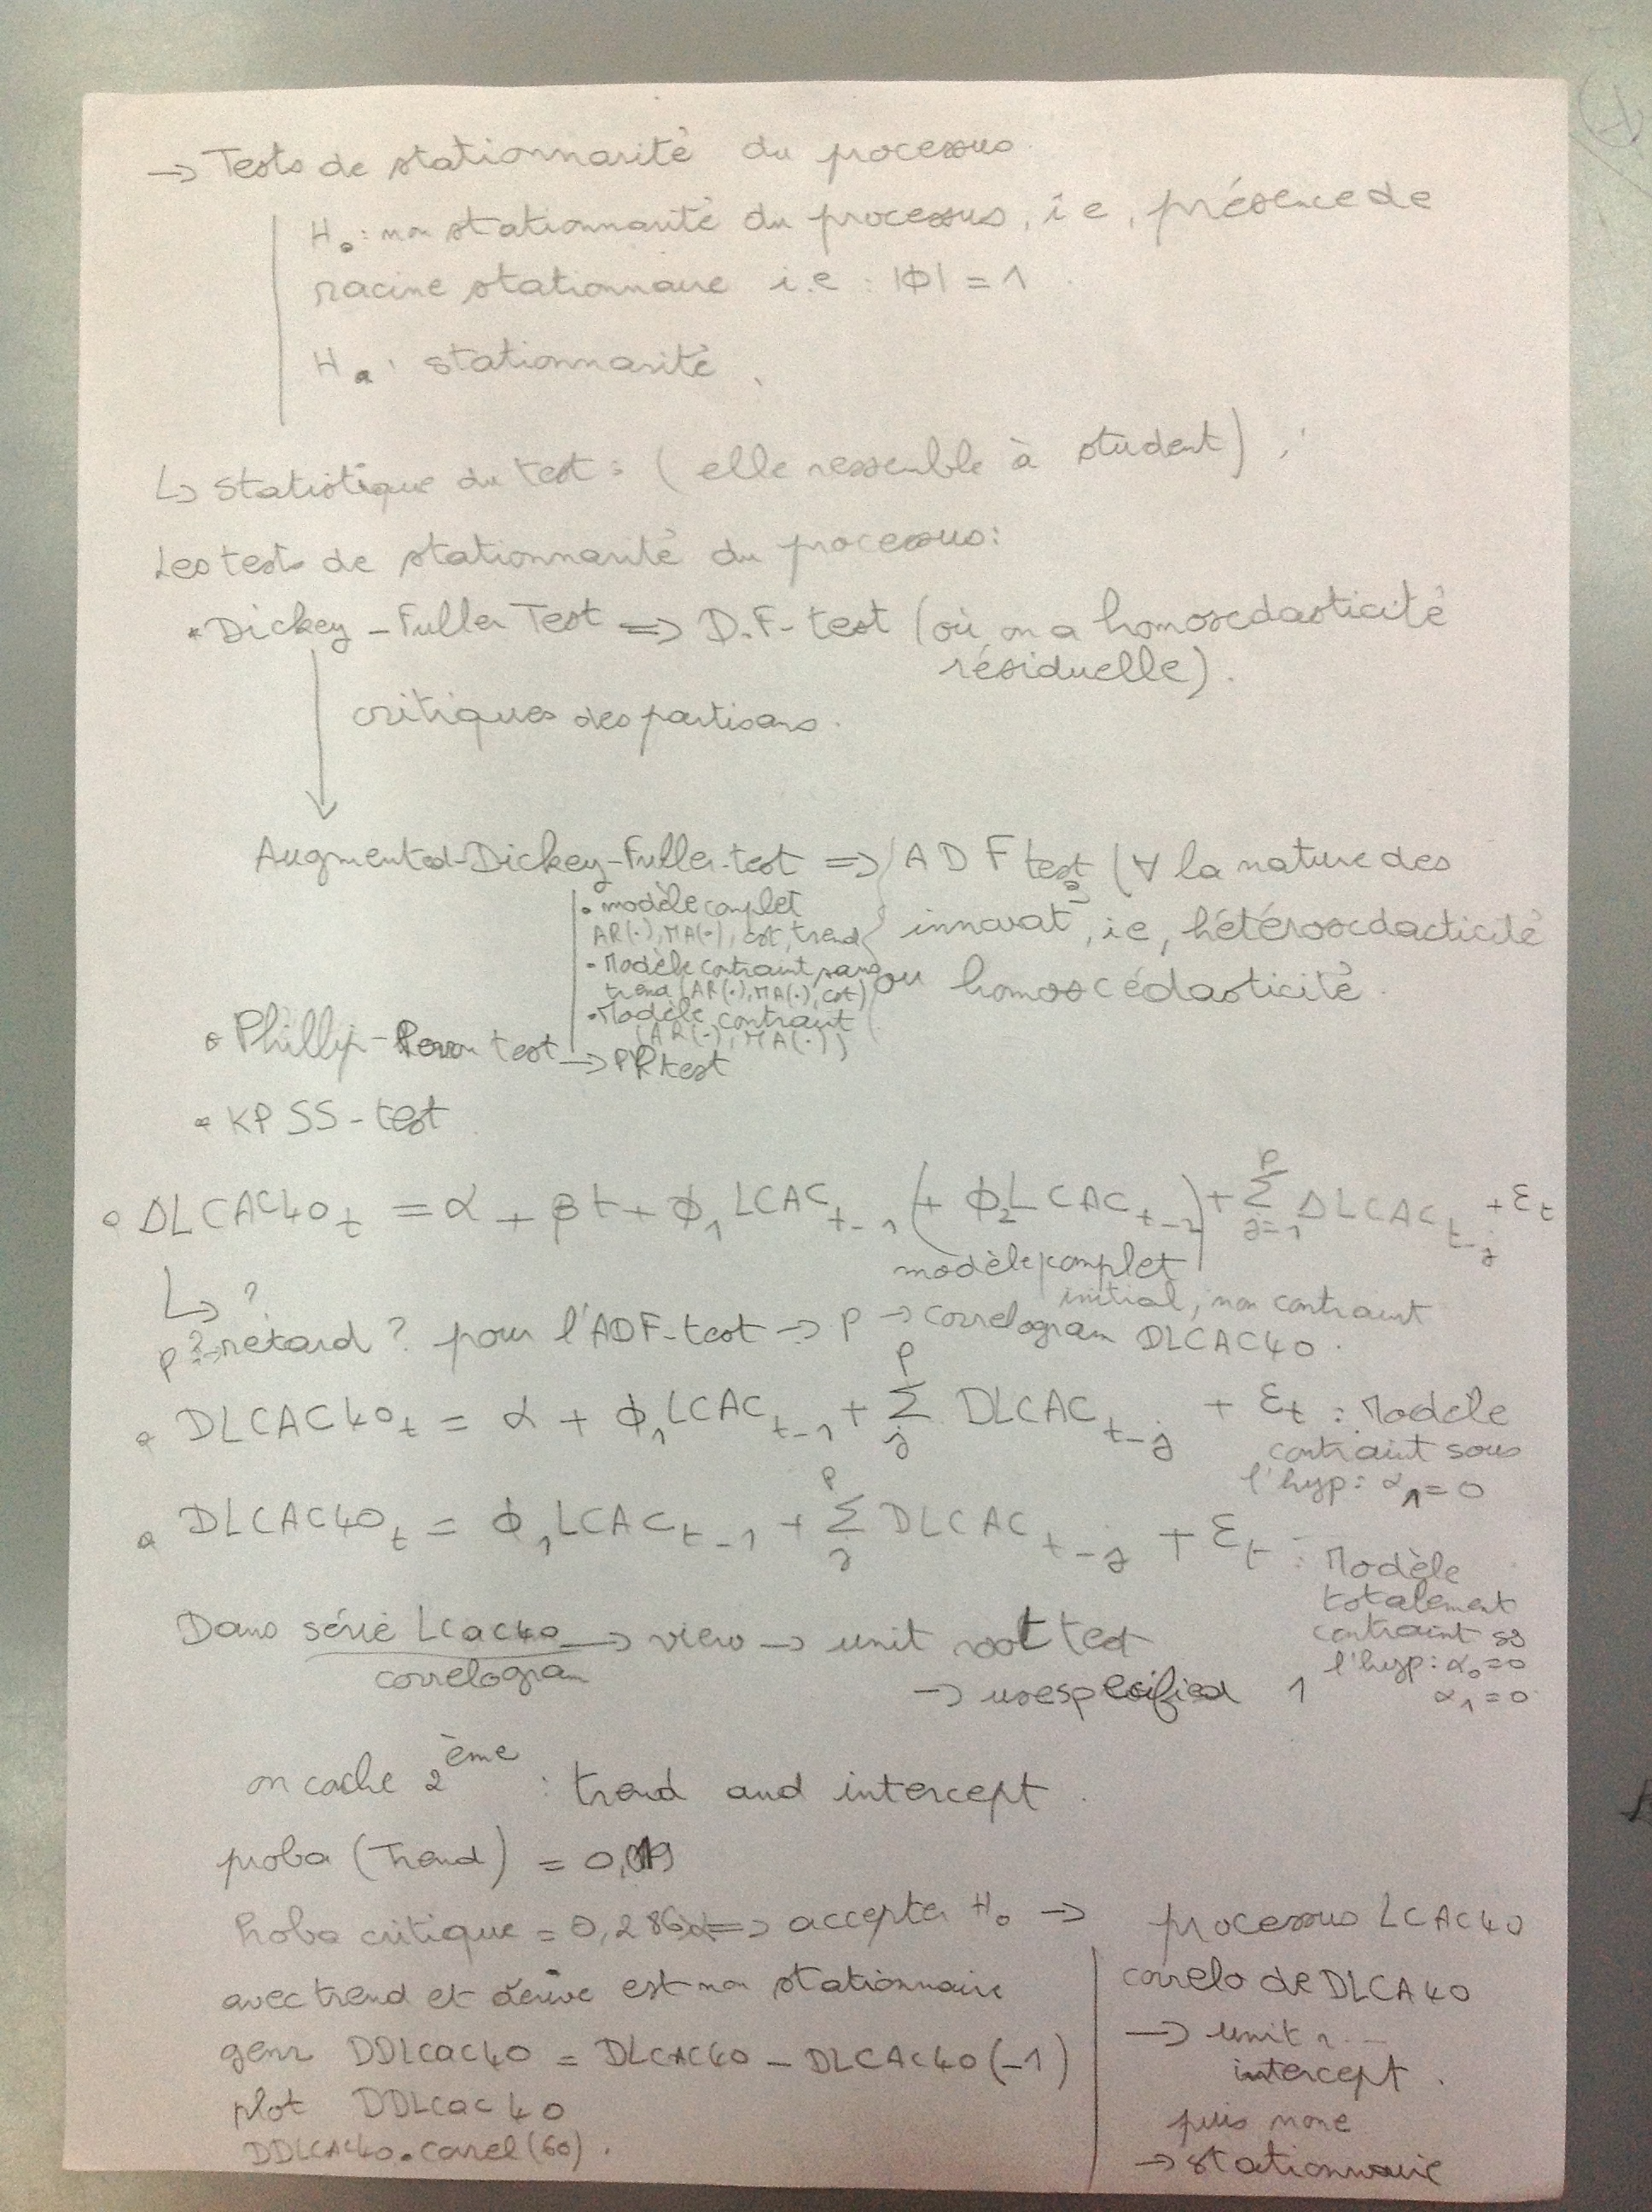 → Tests de stationnarité du processus.
H₀ : non stationnarité du processus, i e, présence de
racine stationnaire i.e : |Φ| = 1.
Hₐ : stationnarité.
↳ Statistique du test : (elle ressemble à student),
Les tests de stationnarité du processus :
• Dickey - Fuller Test ⇒ D.F- test (où on a homoscdasticité
résiduelle).
critiques des partisans.
Augmented-Dickey-Fuller-test ⇒ ADF test (∀ la nature des
innovat°, i e, hétéroscdacticité
ou homoscédasticité.
• modèle complet
AR(.), MA(.), cst, trend
• Modèle contraint sans
trend (AR(.), MA(.), cst)
• Modèle contraint
(AR(.), MA(.))
• Phillip - Perron test → PP test
• KPSS - test
• DLCAC40ₜ = α + βt + ϕ₁ LCACₜ₋₁ (+ ϕ₂LCACₜ₋₂) + Σⱼ₌₁ᵖ DLCACₜ₋ⱼ + εₜ
modèle complet
initial, non contraint
↳ ?
p ? → retard ? pour l'ADF-test → p → correlogram DLCAC40.
• DLCAC40ₜ = α + ϕ₁LCACₜ₋₁ + Σⱼᵖ DLCACₜ₋ⱼ + εₜ : Modèle
contraint sous
l'hyp : α₁ = 0
• DLCAC40ₜ = ϕ₁LCACₜ₋₁ + Σⱼᵖ DLCACₜ₋ⱼ + εₜ : Modèle
totalement
contraint ss
l'hyp : α₀ = 0
α₁ = 0
Dans série Lcac40 → view → unit root test
correlogram
→ use specified 1
on cache 2ème : trend and intercept.
proba (Trend) =
Proba critique = ⇒ accepter H₀ → processus LCAC40
avec trend et dérive est non stationnaire
genr DDLcac40 = DLCAC40 - DLCAC40(-1)
plot DDLcac40
DDLCAC40.correl(60).
correlo de DLCA40
→ unit r...
intercept.
puis none
→ stationnaire